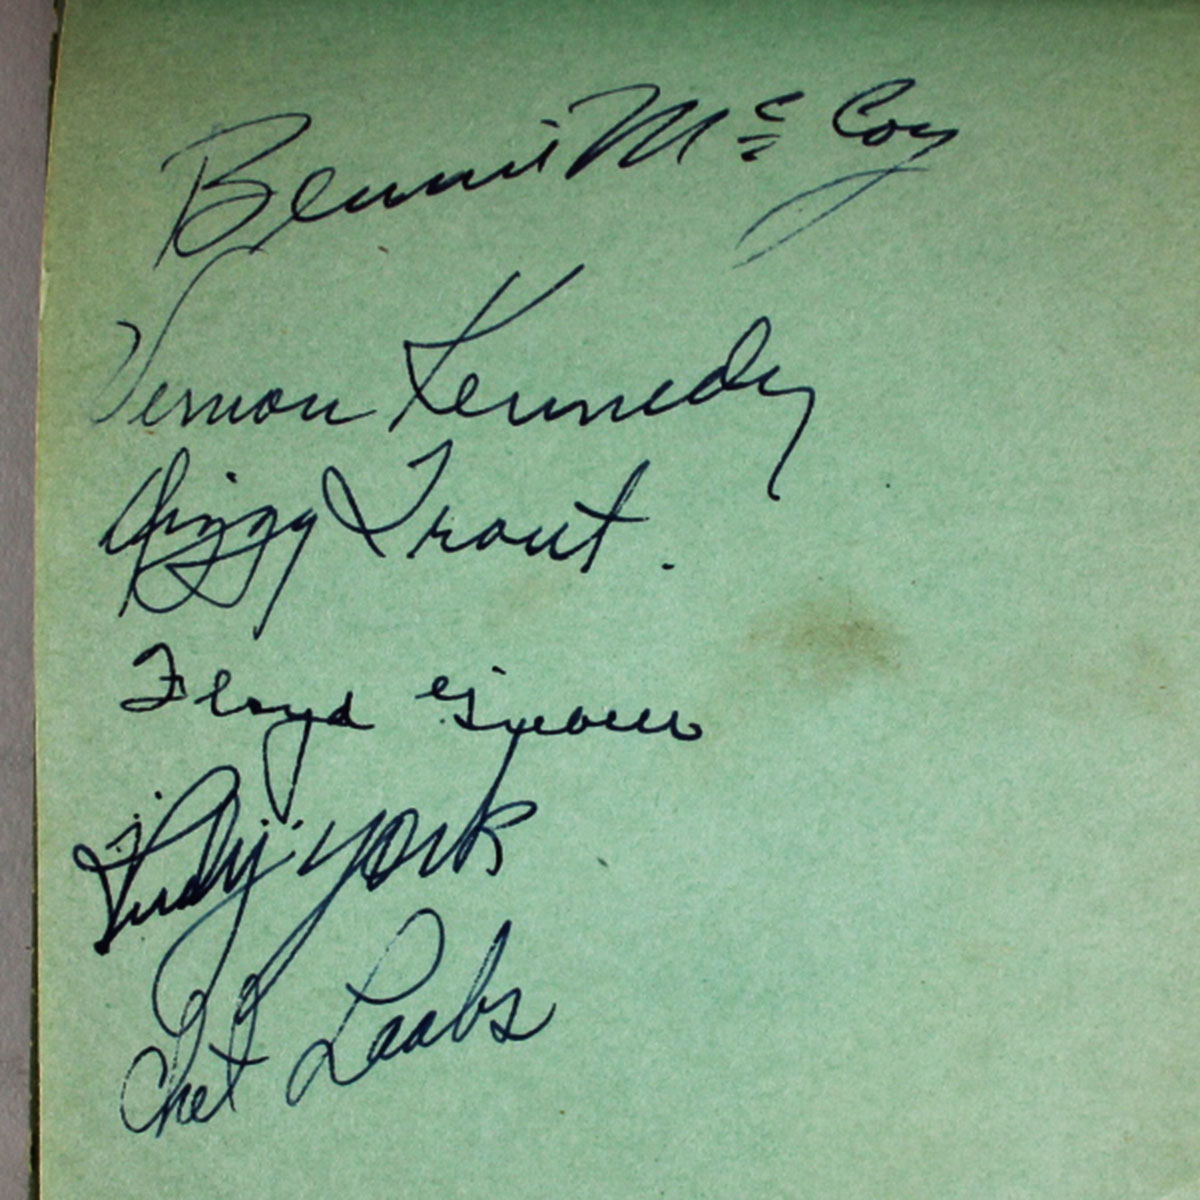 Bennie McCoy
Vernon Kennedy
Dizzy Trout.
Floyd Giebell
Rudy York
Chet Laabs